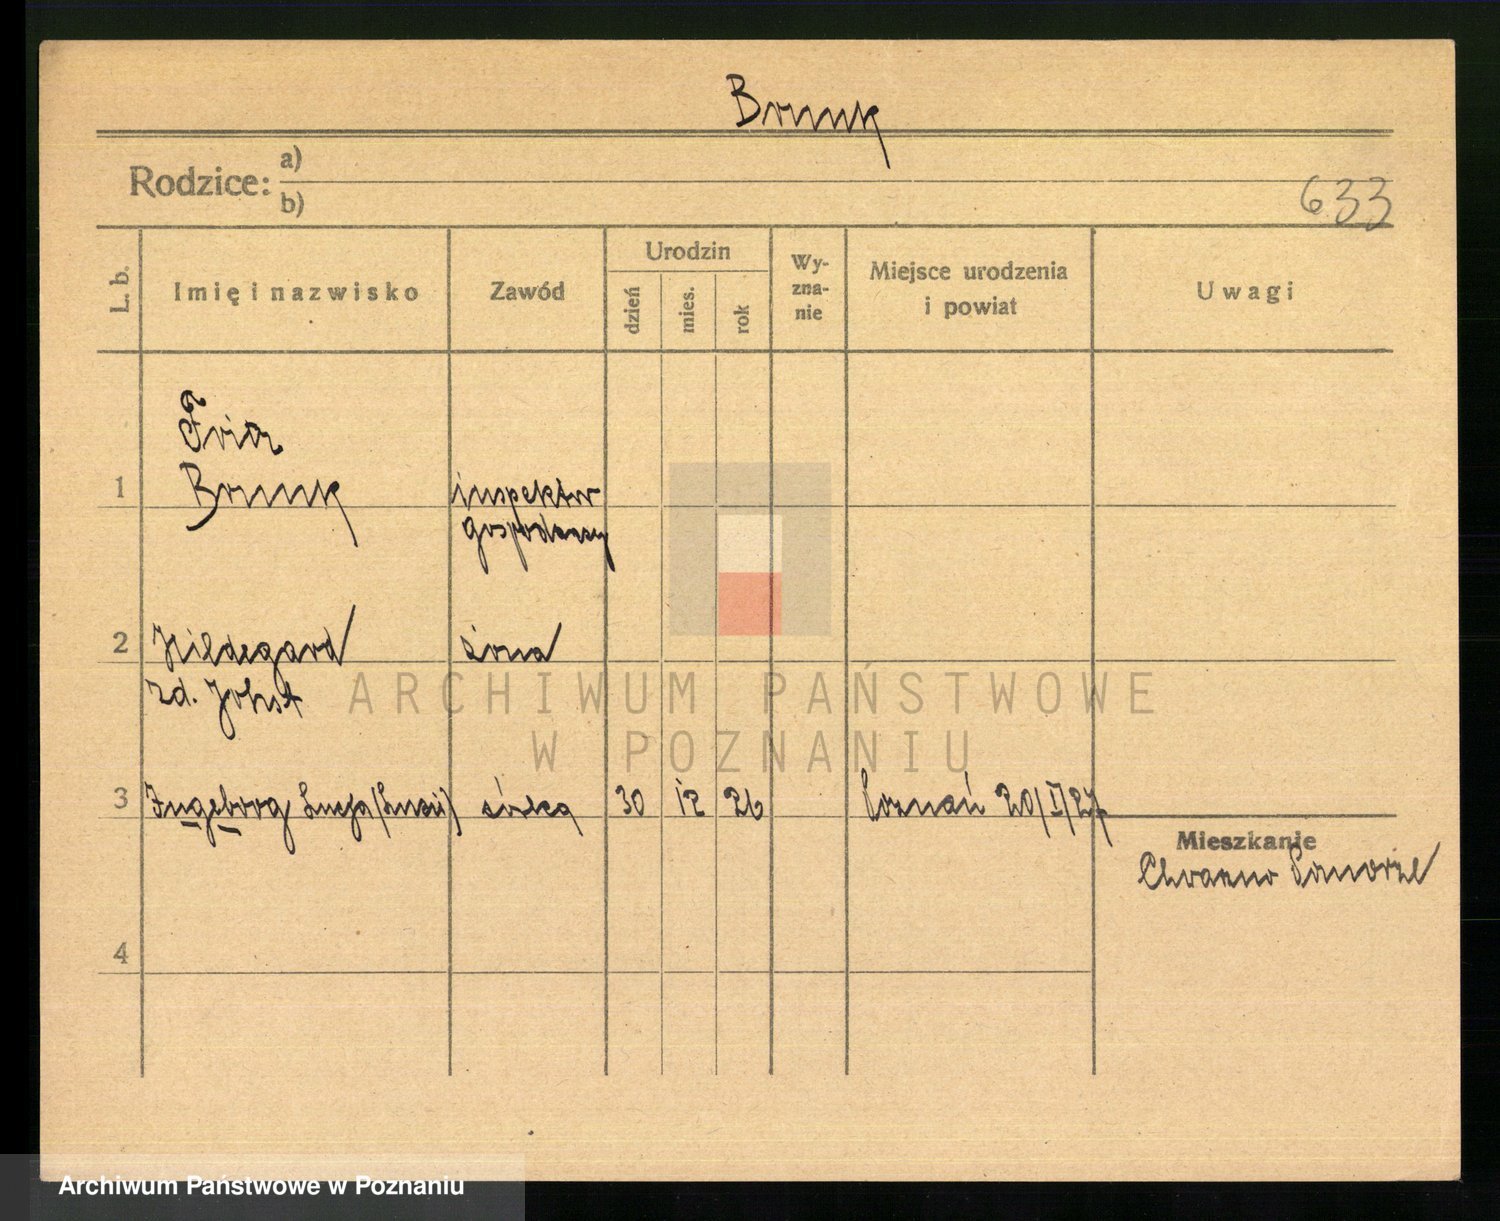 Brunk
Rodzice: a)
b)
633
L. b.
Imię i nazwisko
Zawód
Urodzin
dzień
mies.
rok
Wy-
zna-
nie
Miejsce urodzenia
i powiat
Uwagi
1
Brunk
inspektor
gospodarczy
2
Hildegard
żona
zd. Jobst
ARCHIWUM PAŃSTWOWE
W POZNANIU
3 Ingeborg Lucja córka 30 12 26 Poznań 20/I/27
Mieszkanie
4
Archiwum Państwowe w Poznaniu